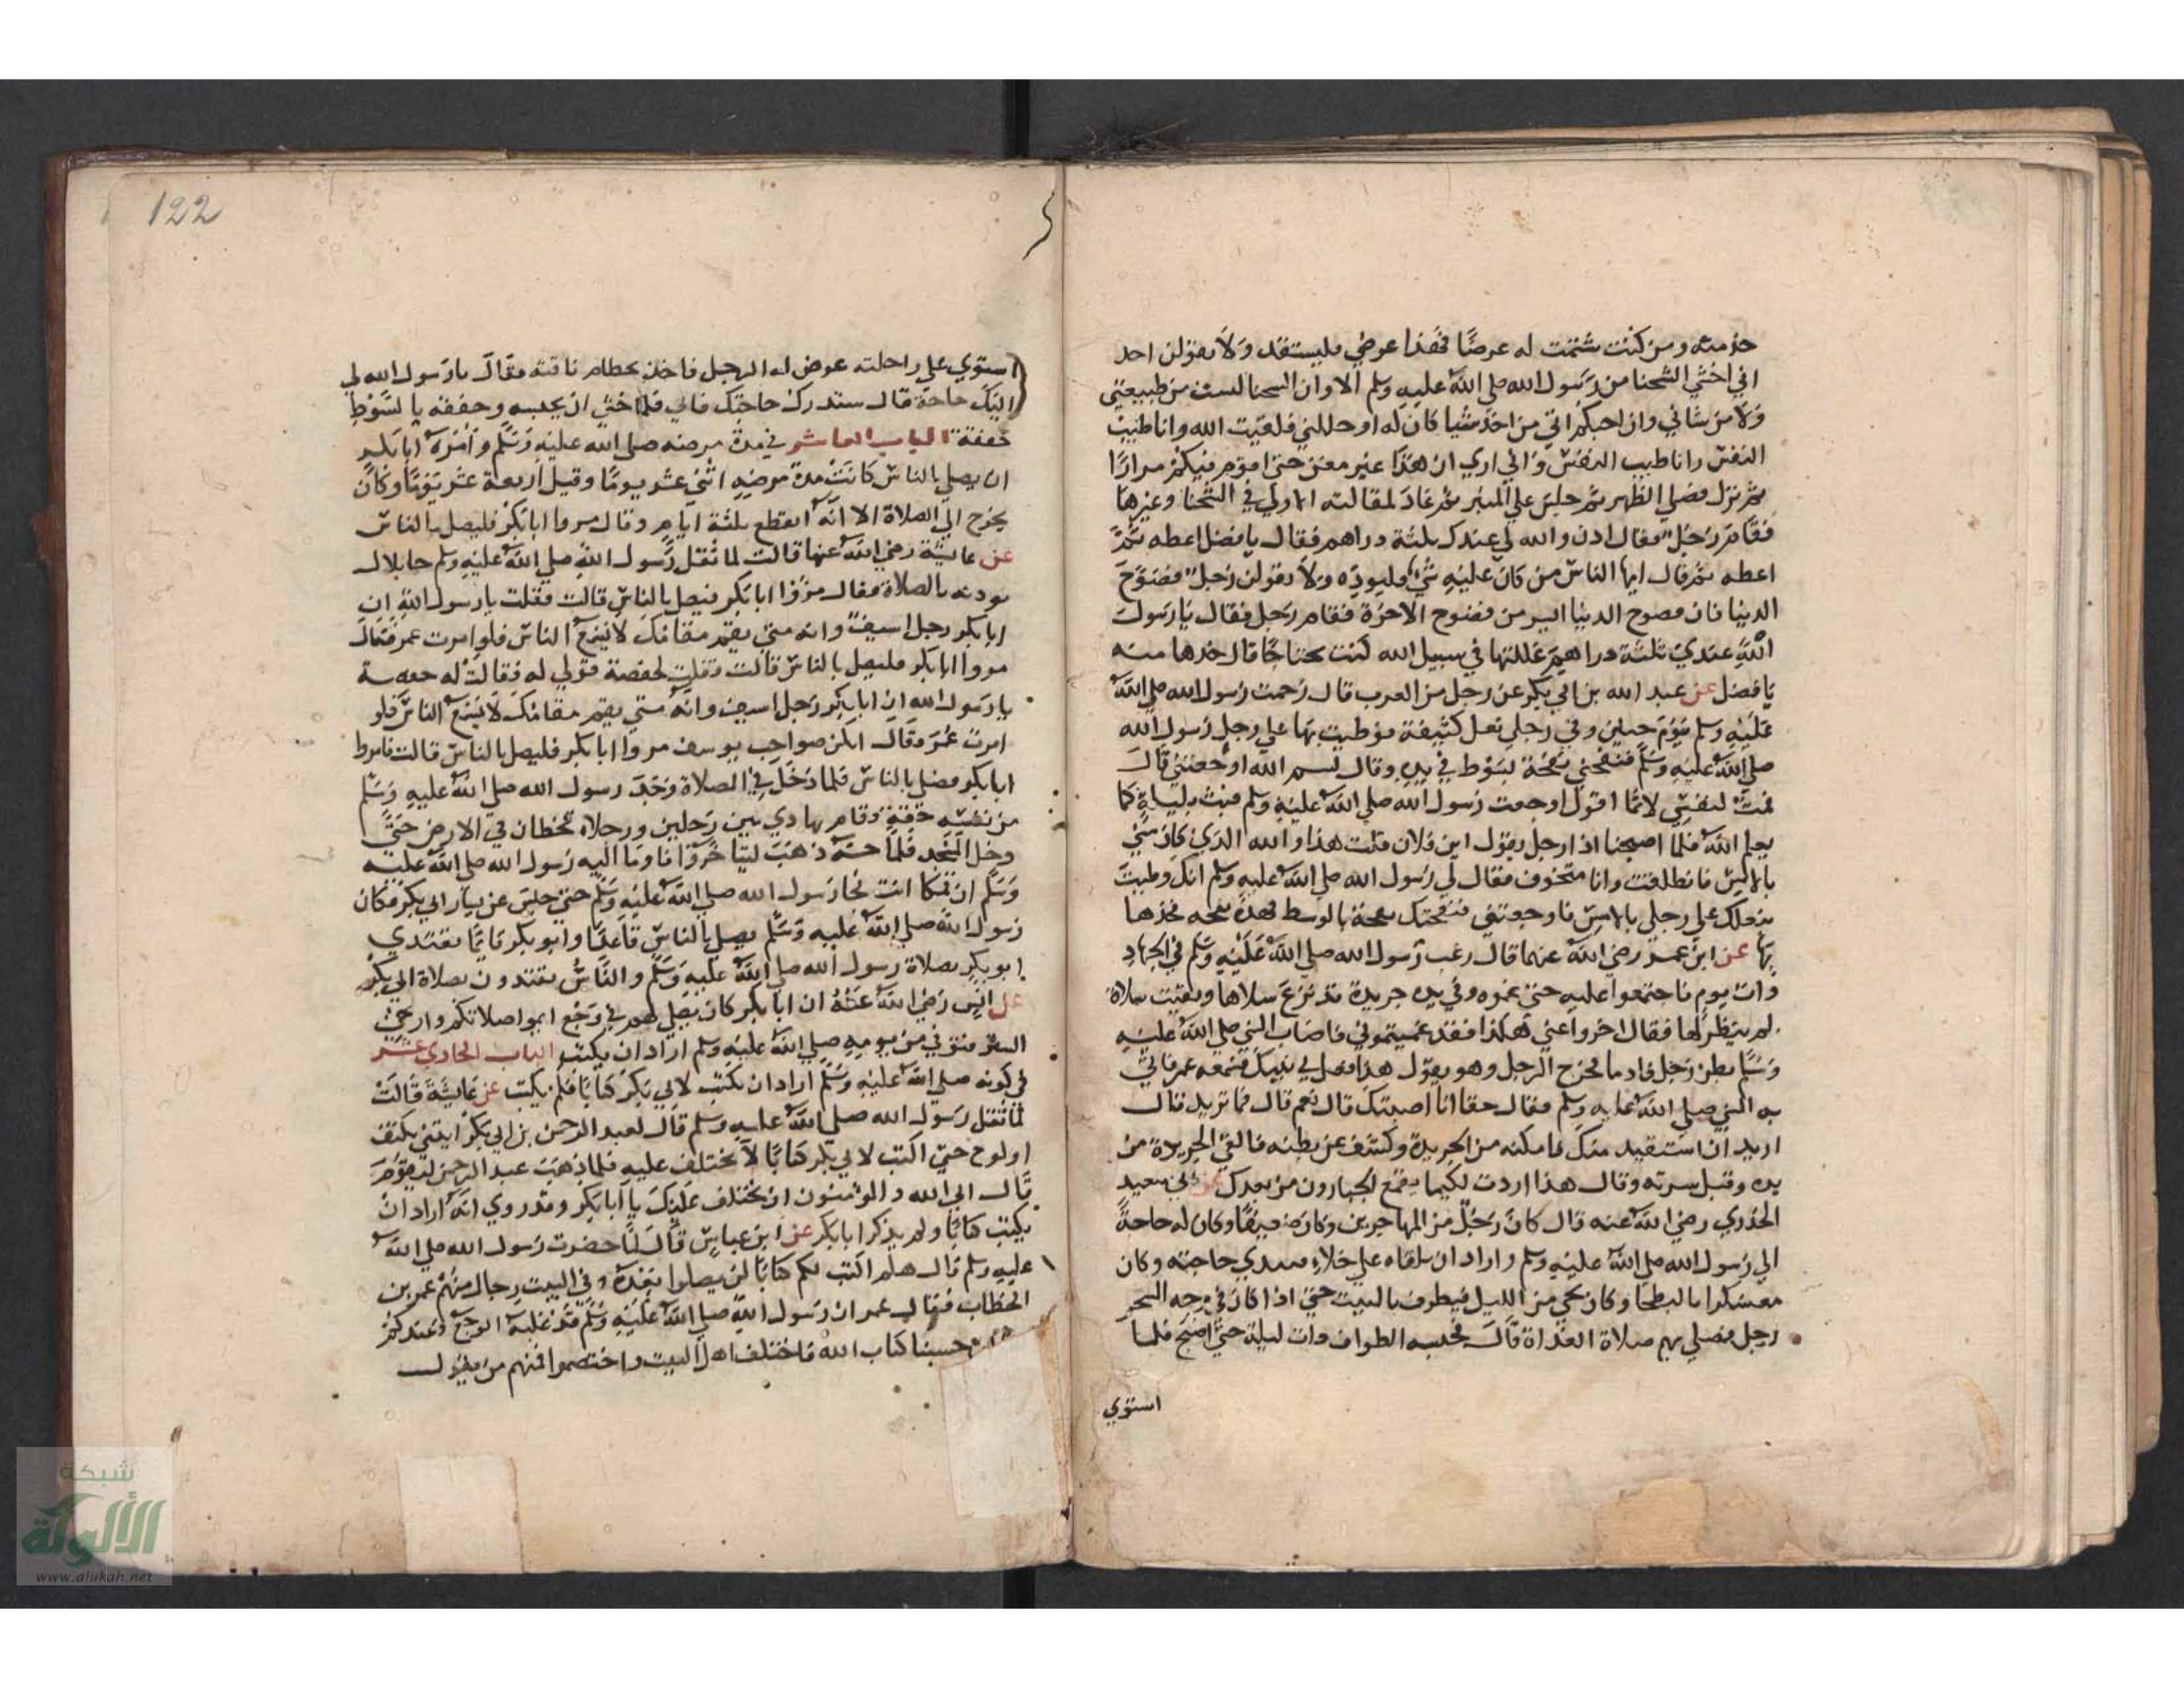 حرمته ومن كنت شتمت له عرضا فهذا عرضي فليستقد ولا يقولن احد
اني اخشي الشحنا من رسول الله صلي الله عليه وسلم الا وان الشحنا ليست من طبيعتي
ولا من شاني وان احبكم الي من اخذ شيا كان له او حللني فلقيت الله وانا طيب
النفس وانا طيب النفس واني اري ان هذا غير مغن حتي اقوم فيكم مرارا
ثم نزل فصلي الظهر ثم جلس علي المنبر ثم عاد لمقالته الاولي في الشحنا وغيرها
فقام رجل فقال اذن والله لي عندك ثلثة دراهم فقال يا فضل اعطه ثم
اعطه ثم قال ايها الناس من كان عليه شي فليوده ولا يقولن رجل فضوح
الدنيا فان فضوح الدنيا ايسر من فضوح الاخرة فقام رجل فقال يا رسول
الله عندي ثلثة دراهم غللتها في سبيل الله كنت محتاجا قال خدها منه
يا فضل عن عبد الله بن ابي بكر عن رجل من العرب قال زحمت رسول الله صلي الله
عليه وسلم يوم حنين وفي رجلي نعل كثيفة فوطيت بها علي رجل رسول الله
صلي الله عليه وسلم فنفحني نفحة بسوط في يده وقال بسم الله اوجعتني قال
فبت لنفسي لائما اقول اوجعت رسول الله صلي الله عليه وسلم فبت بليلة كما
يعلم الله فلما اصبحنا اذا رجل يقول اين فلان قلت هذا والله الذي كان مني
بالامس فانطلقت وانا متخوف فقال لي رسول الله صلي الله عليه وسلم انك وطيت
بنعلك علي رجلي بالامس فاوجعتني فنفحتك نفحة بالسوط فهذه نعجة فخذها
بها عن ابن عمر رضي الله عنهما قال رغب رسول الله صلي الله عليه وسلم في الجهاد
ذات يوم فاجتمعوا عليه حتي غموه وفي يده جريدة قد نزع سلاها وبقيت سلاة
لم ينظر لها فقال اخروا عني هكذا فقد غميتموني فاصاب النبي صلي الله عليه
وسلم بطن رجل فادما فخرج الرجل وهو يقول هذا فعل بي نبيك فسمعه عمر فاتي
به النبي صلي الله عليه وسلم فقال حقا انا اصبتك قال نعم قال فما تريد قال
اريد ان استقيد منك فامكنه من الجريدة وكشف عن بطنه فالقي الجريدة من
يده وقبل سرته وقال هذا اردت لكيما يقمع الجبارون من بعدك عن ابي سعيد
الخدري رضي الله عنه قال كان رجل من المهاجرين وكان ضعيفا وكان له حاجة
الي رسول الله صلي الله عليه وسلم واراد ان يلقاه علي خلاء فيبدي حاجته وكان
معسكرا بالبطحا وكان يجي من الليل فيطوف بالبيت حتي اذا كان في وجه السحر
رجل فصلي بهم صلاة الغداة قال فحبسه الطواف ذات ليلة حتي اصبح فلما
استوي
122
استوي علي راحلته عرض له الرجل فاخذ بخطام ناقته فقال يا رسول الله لي
اليك حاجة قال ستدرك حاجتك فابي فلما خشي ان يحبسه وخفقه بالسوط
خفقة الباب العاشر في مدة مرضه صلي الله عليه وسلم وامره ابا بكر
ان يصلي بالناس كانت مدة مرضه اثني عشر يوما وقيل اربعة عشر يوما وكان
يخرج الي الصلاة الا انه انقطع ثلثة ايام وقال مروا ابا بكر فليصل بالناس
عن عايشة رضي الله عنها قالت لما ثقل رسول الله صلي الله عليه وسلم جا بلال
يوذنه بالصلاة فقال مروا ابا بكر فليصل بالناس قالت فقلت يا رسول الله ان
ابا بكر رجل اسيف وانه متي يقم مقامك لا يسمع الناس فلو امرت عمر فقال
مروا ابا بكر فليصل بالناس قالت فقلت لحفصة قولي له فقالت له حفصة
يا رسول الله ان ابا بكر رجل اسيف وانه متي يقم مقامك لا يسمع الناس فلو
امرت عمر فقال انكن صواحب يوسف مروا ابا بكر فليصل بالناس قالت فامروا
ابا بكر فصلي بالناس فلما دخل في الصلاة وجد رسول الله صلي الله عليه وسلم
من نفسه خفة وقام يهادي بين رجلين ورجلاه تخطان في الارض حتي
دخل المسجد فلما حسه ذهب ليتاخر فاوما اليه رسول الله صلي الله عليه
وسلم ان قم كما انت فجا رسول الله صلي الله عليه وسلم حتي جلس عن يسار ابي بكر فكان
رسول الله صلي الله عليه وسلم يصلي بالناس قاعدا وابو بكر قائما يقتدي
ابو بكر بصلاة رسول الله صلي الله عليه وسلم والناس يقتدون بصلاة ابي بكر
عن انس رضي الله عنه ان ابا بكر كان يصلي لهم في وجع اتموا صلاتكم وارخي
الستر فتوفي من يومه صلي الله عليه وسلم اراد ان يكتب الباب الحادي عشر
في كونه صلي الله عليه وسلم اراد ان يكتب لابي بكر كتابا فلم يكتب عن عايشة قالت
لما ثقل رسول الله صلي الله عليه وسلم قال لعبد الرحمن بن ابي بكر ايتني بكتف
او لوح حتي اكتب لابي بكر كتابا لا يختلف عليه فلما ذهب عبد الرحمن ليقوم
قال ابي الله والمومنون ان يختلف عليك يا ابا بكر وقد روي انه اراد ان
يكتب كتابا ولم يذكر ابا بكر عن ابن عباس قال لما حضرت رسول الله صلي الله
عليه وسلم قال هلم اكتب لكم كتابا لن تضلوا بعده وفي البيت رجال منهم عمر بن
الخطاب فقال عمر ان رسول الله صلي الله عليه وسلم قد غلبه الوجع وعندكم
حسبنا كتاب الله فاختلف اهل البيت واختصموا فمنهم من يقول
شبكة
الألوكة
www.alukah.net